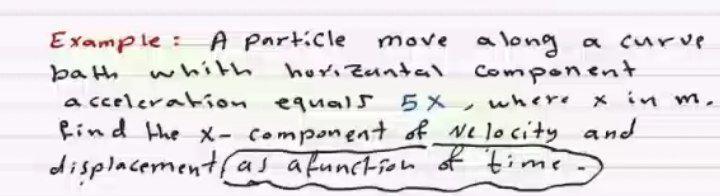 Example: A particle move along a curve
path whith horizantal component
acceleration equals 5x, where x in m.
find the x- component of velocity and
displacement (as a function of time.)